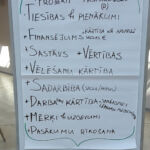 TIESĪBAS & PIENĀKUMI
+ FINANSĒJUMS
+ SASTĀVS + VĒRTĪBAS
+ VĒLĒŠANU KĀRTĪBA
+ SADARBĪBA
+ DARBA KĀRTĪBA
+ MĒRĶI & UZDEVUMI
+ PASĀKUMU RĪKOŠANA